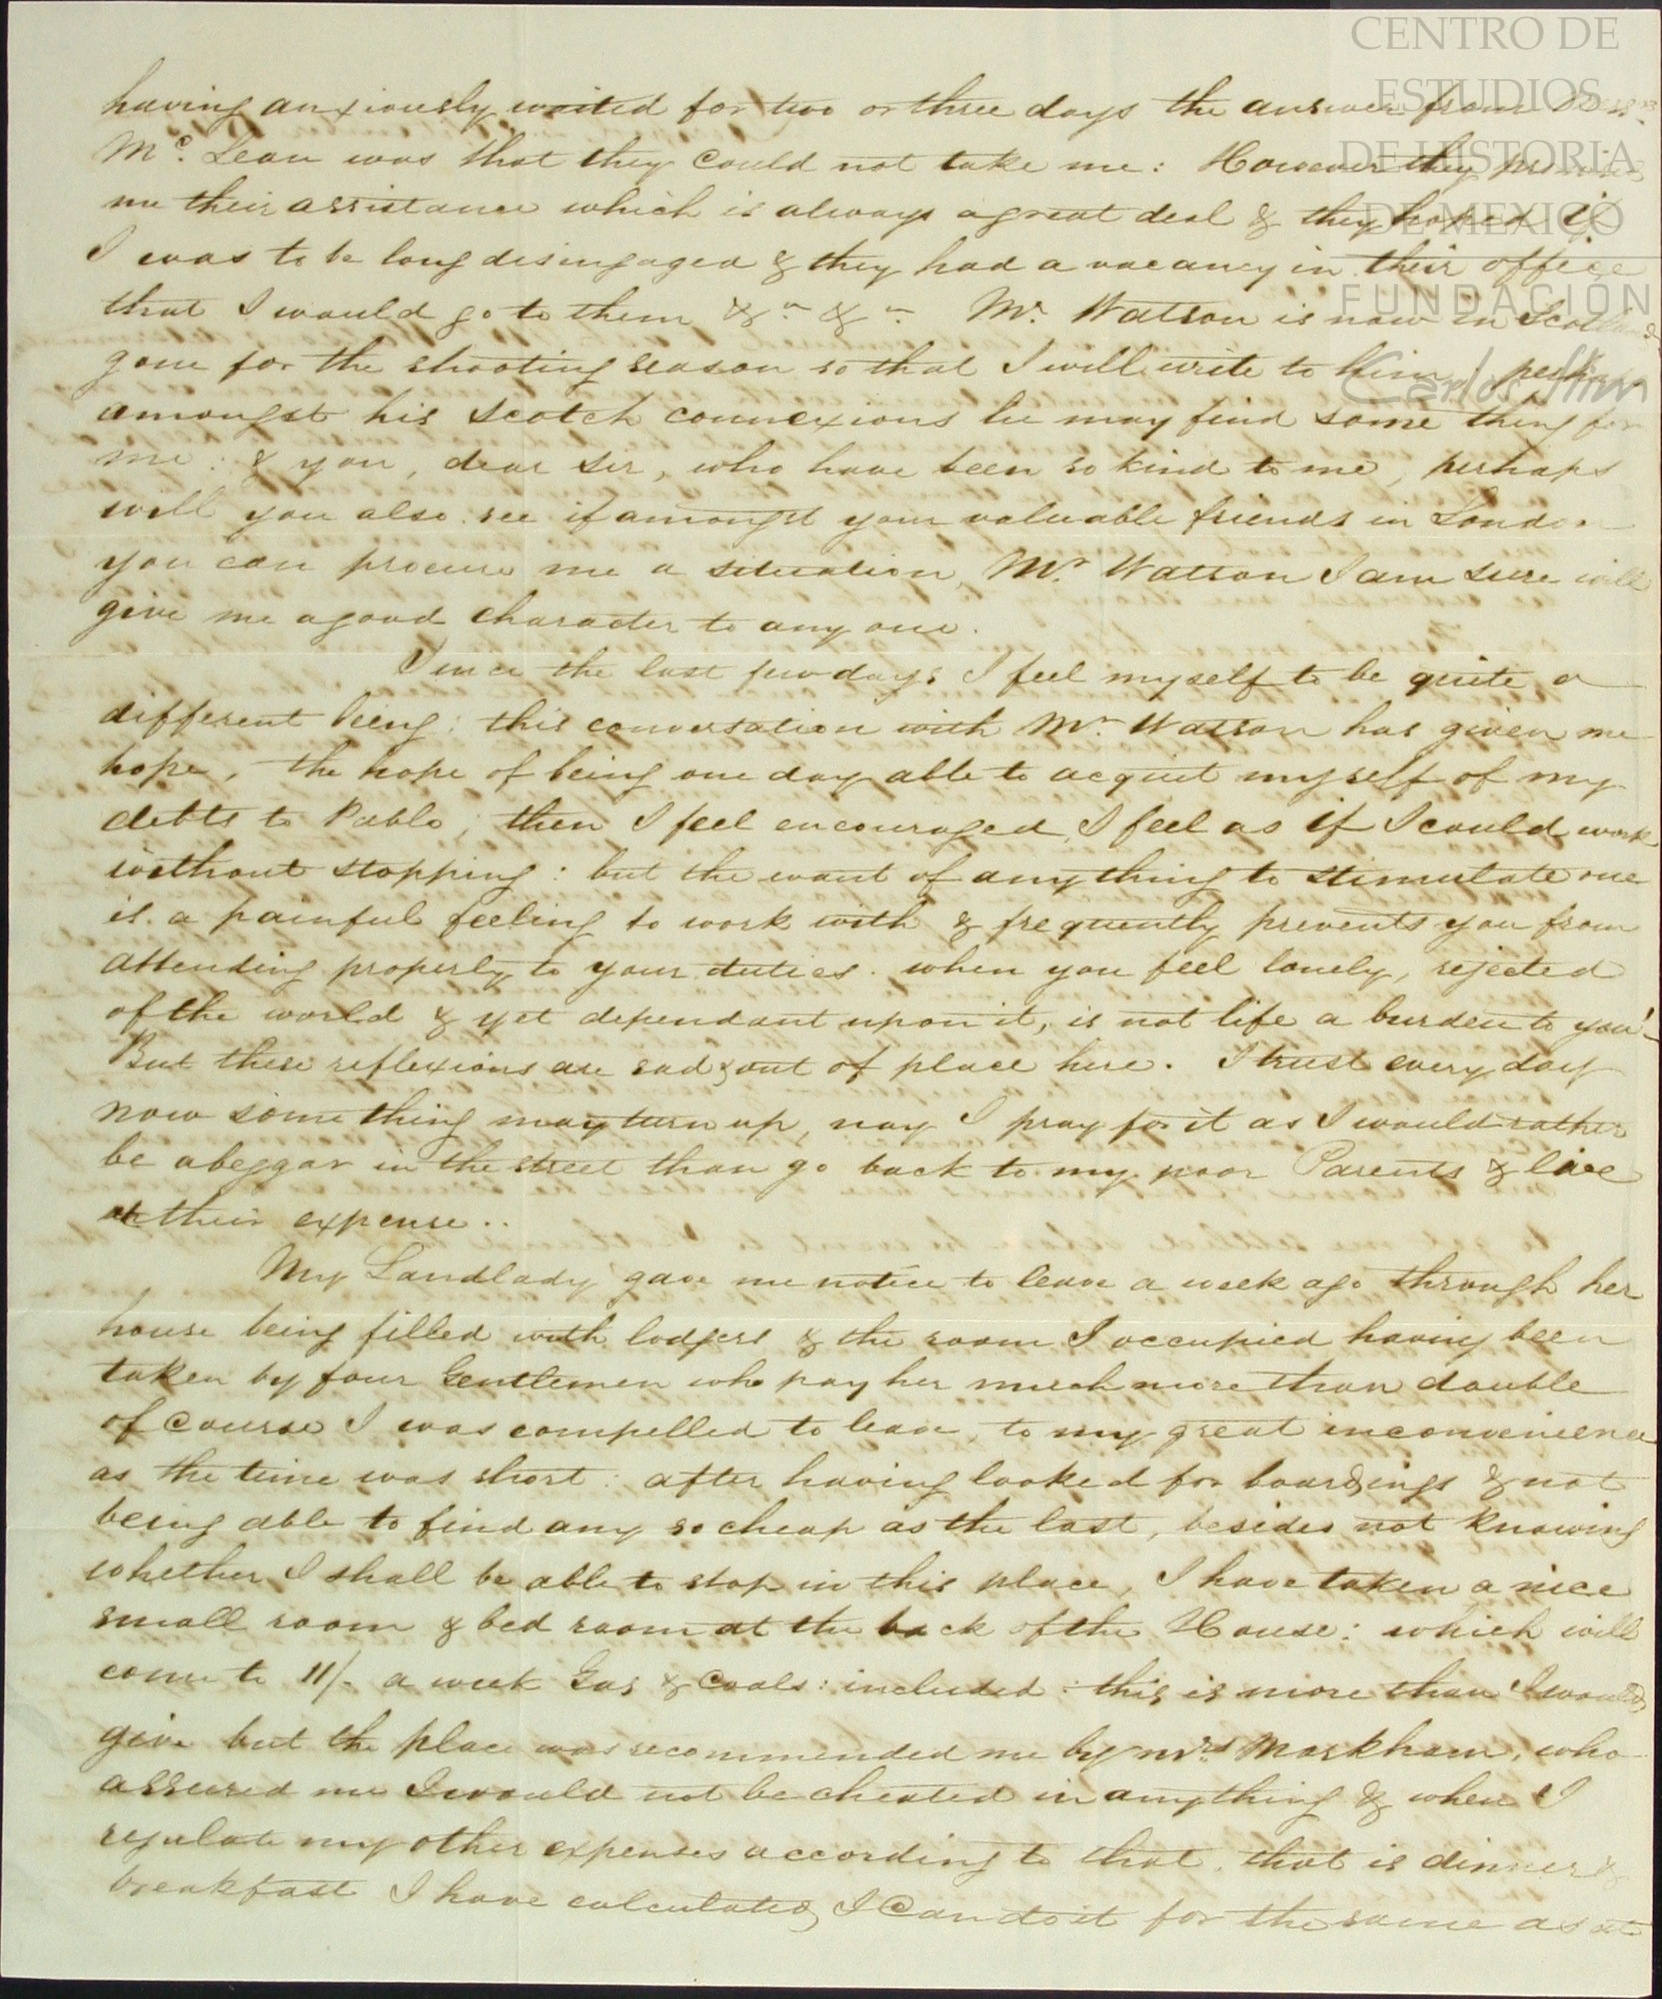 CENTRO DE
ESTUDIOS
DE HISTORIA
DE MEXICO
FUNDACIÓN
Carlos Slim
having anxiously waited for two or three days the answer from Messrs
Mc. Lean was that they could not take me: However they promised
me their assistance which is always a great deal & they hoped if
I was to be long disengaged & they had a vacancy in their office
that I would go to them &a &a Mr. Watson is now in Scotland
gone for the shooting season so that I will write to him, perhaps
amongst his Scotch connexions he may find some thing for
me: & you, dear Sir, who have been so kind to me, perhaps
will you also see if amongst your valuable friends in London
you can procure me a situation, Mr. Watson I am sure will
give me a good character to any one.
Since the last few days I feel myself to be quite a
different being: this conversation with Mr. Watson has given me
hope, the hope of being one day able to acquit myself of my
debts to Pablo; then I feel encouraged, I feel as if I could work
without stopping: but the want of anything to stimulate one
is a painful feeling to work with & frequently prevents you from
attending properly to your duties. when you feel lonely, rejected
of the world & yet dependant upon it, is not life a burden to you!
But these reflexions are sad & out of place here. I trust every day
now some thing may turn up, nay I pray for it as I would rather
be a beggar in the street than go back to my poor Parents & live
at their expense..
My Landlady gave me notice to leave a week ago through her
house being filled with lodgers & the room I occupied having been
taken by four Gentlemen who pay her much more than double
of course I was compelled to leave, to my great inconvenience
as the time was short: after having looked for boardings & not
being able to find any so cheap as the last, besides not knowing
whether I shall be able to stop in this place, I have taken a nice
small room & bed room at the back of the House: which will
come to 11/- a week Gas & Coals: included: this is more than I would
give but the place was recommended me by Mrs Markham, who
assured me I would not be cheated in anything & when I
regulate my other expenses according to that, that is dinner &
breakfast I have calculated I can do it for the same as at